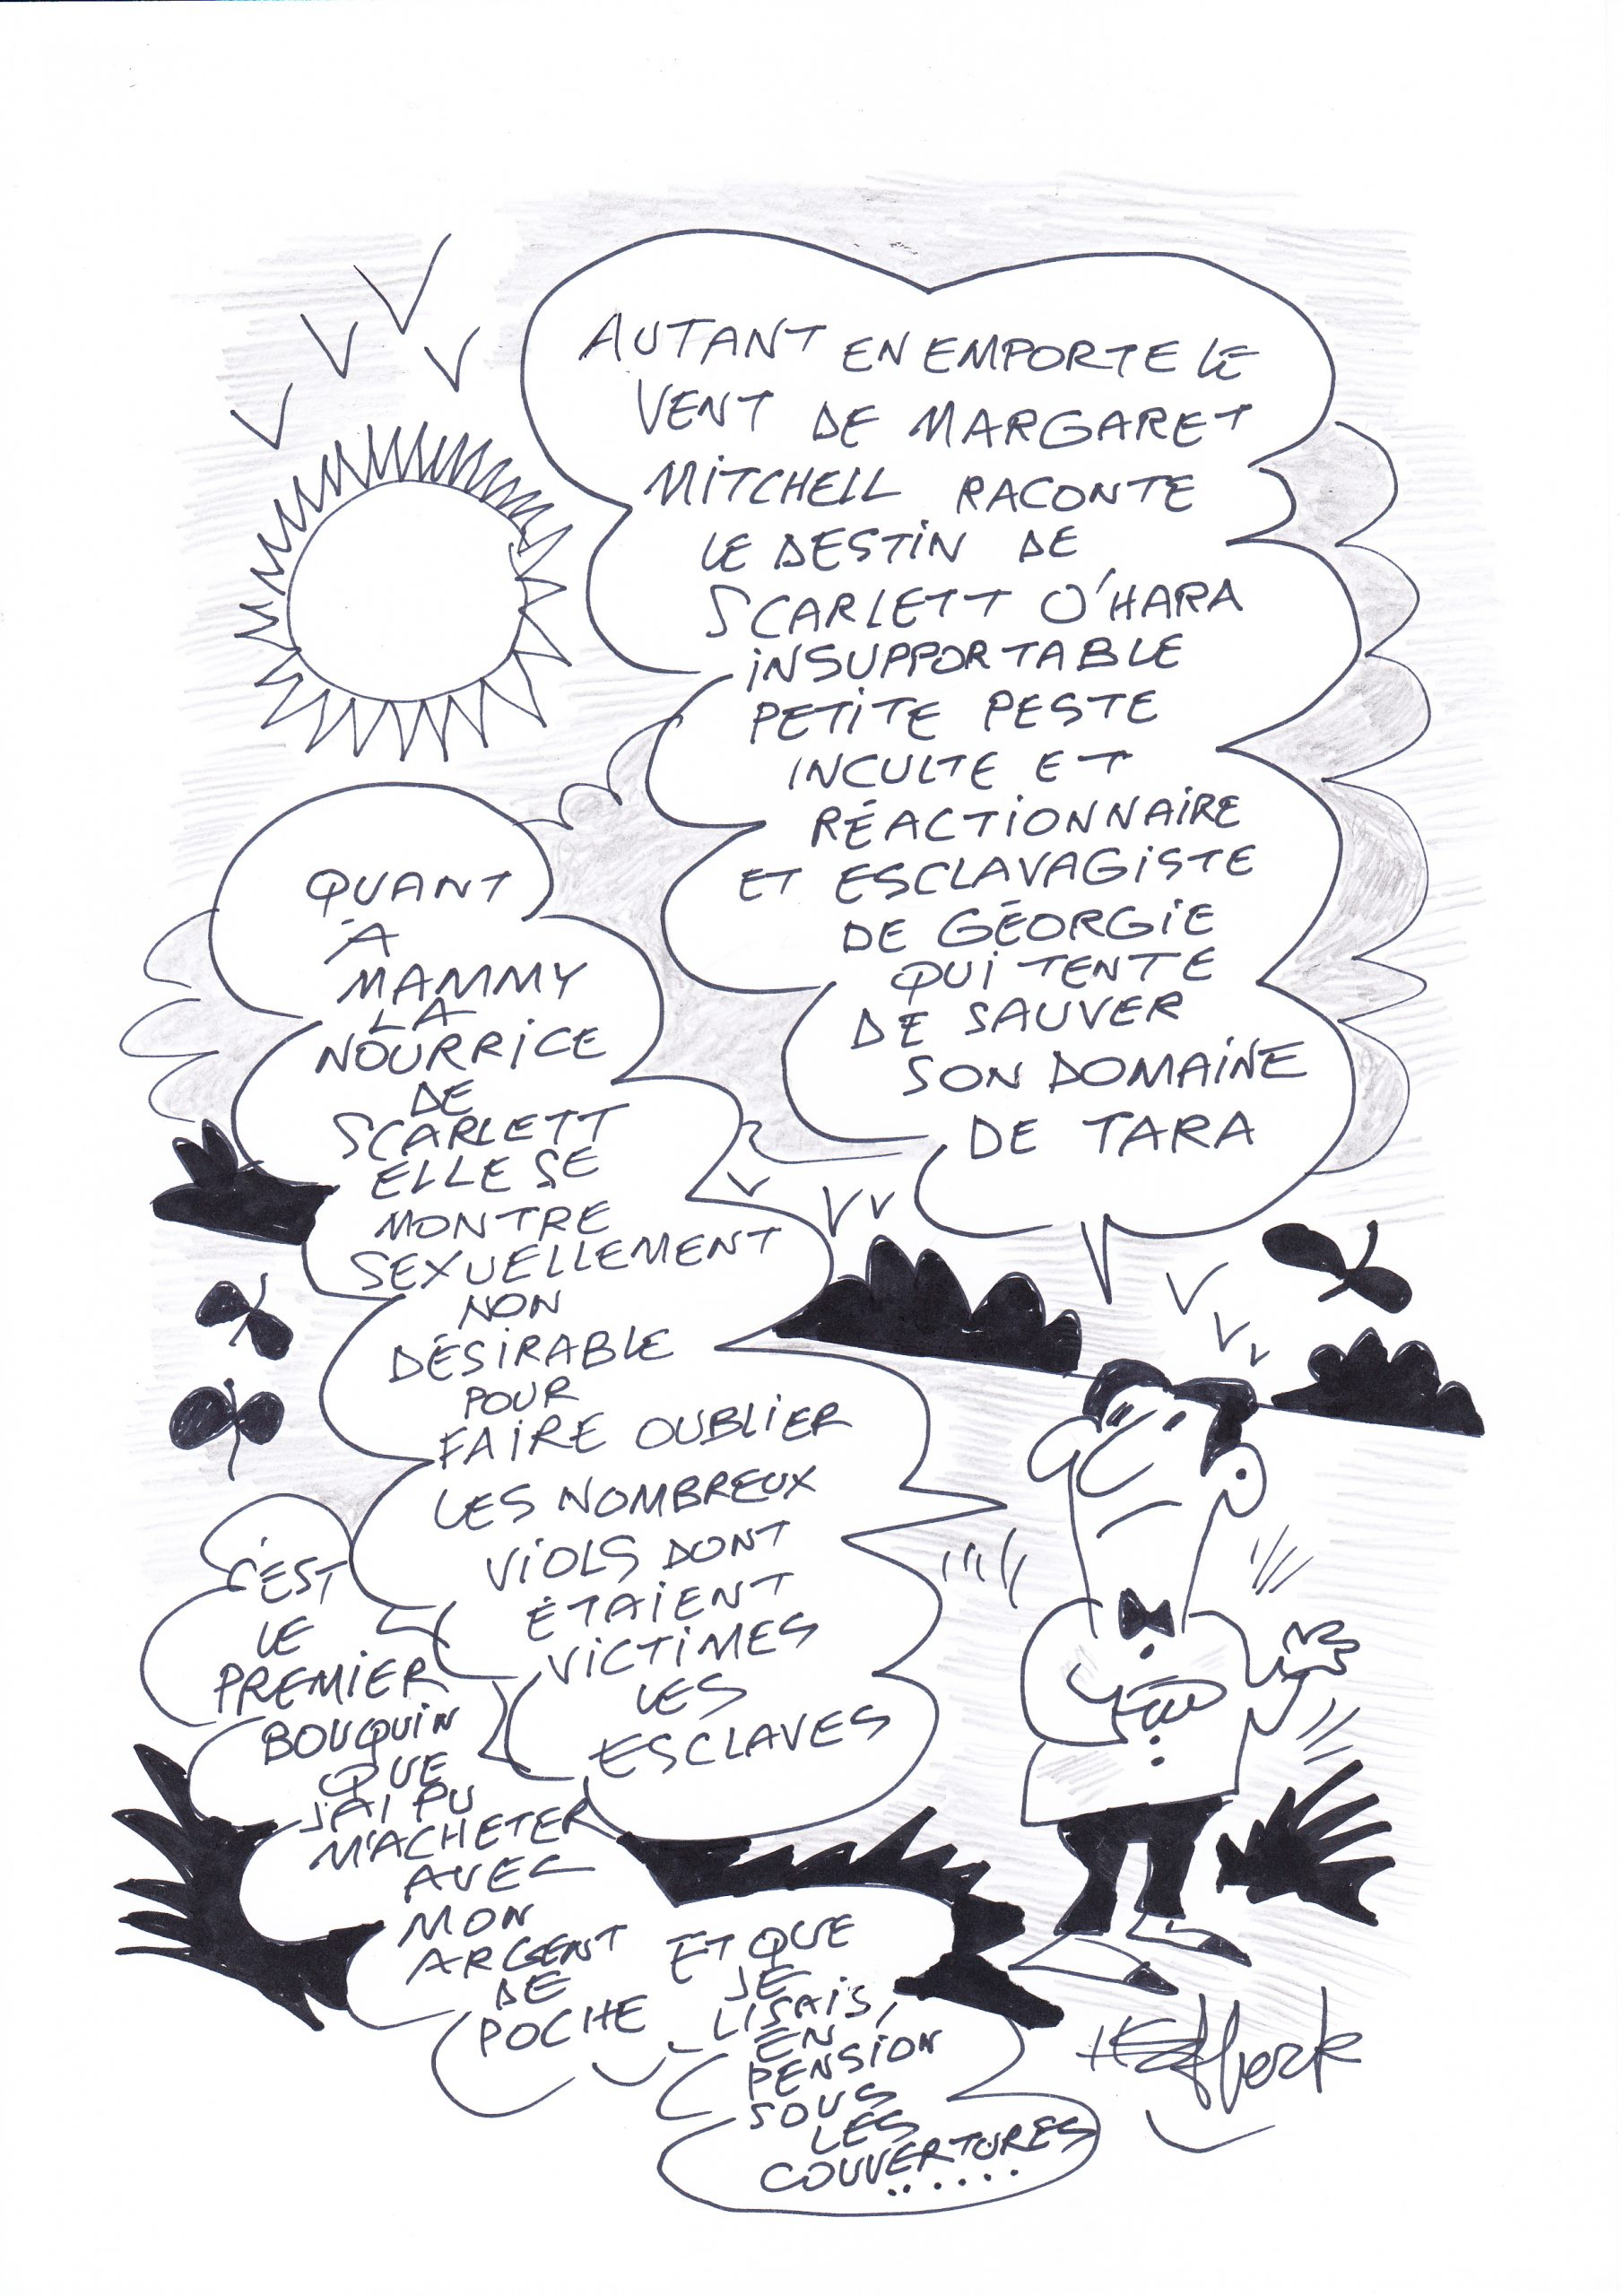 AUTANT EN EMPORTE LE
VENT DE MARGARET
MITCHELL RACONTE
LE DESTIN DE
SCARLETT O'HARA
INSUPPORTABLE
PETITE PESTE
INCULTE ET
RÉACTIONNAIRE
ET ESCLAVAGISTE
DE GÉORGIE
QUI TENTE
DE SAUVER
SON DOMAINE
DE TARA
QUANT
À
MAMMY
LA
NOURRICE
DE
SCARLETT
ELLE SE
MONTRE
SEXUELLEMENT
NON
DÉSIRABLE
POUR
FAIRE OUBLIER
LES NOMBREUX
VIOLS DONT
ÉTAIENT
VICTIMES
LES
ESCLAVES
C'EST
LE
PREMIER
BOUQUIN
QUE
J'AI PU
M'ACHETER
AVEC
MON
ARGENT
DE
POCHE
ET QUE
JE
LISAIS,
EN
PENSION
SOUS
LES
COUVERTURES
......